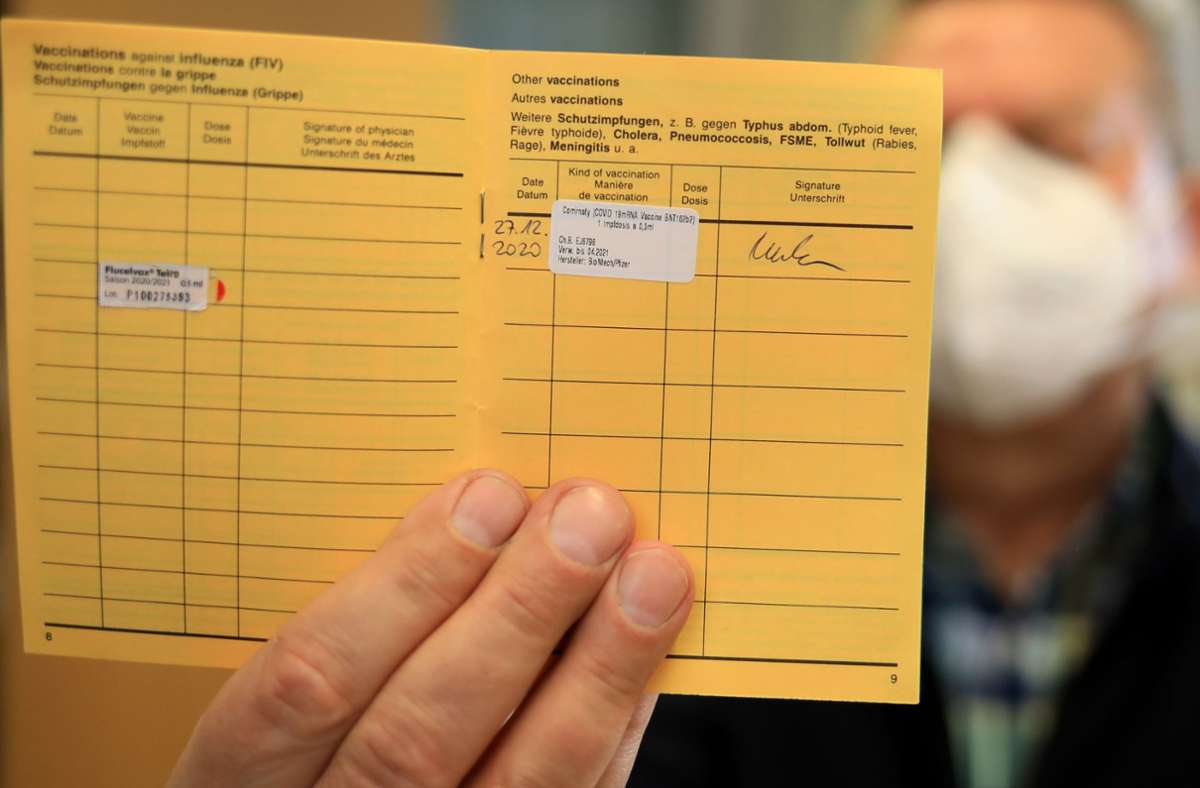 Vaccinations against Influenza (FIV)
Vaccinations contre la grippe
Schutzimpfungen gegen Influenza (Grippe)
Date
Datum
Vaccine
Vaccin
Impfstoff
Dose
Dosis
Signature of physician
Signature du médecin
Unterschrift des Arztes
Flucelvax® Tetra
Saison 2020/2021 0,5 ml
Lot: P100275393
8
Other vaccinations
Autres vaccinations
Weitere Schutzimpfungen, z. B. gegen Typhus abdom. (Typhoid fever,
Fièvre typhoide), Cholera, Pneumococcosis, FSME, Tollwut (Rabies,
Rage), Meningitis u. a.
Date
Datum
Kind of vaccination
Manière
de vaccination
Dose
Dosis
Signature
Unterschrift
27.12.
2020
Comirnaty (COVID 19mRNA Vaccine BNT162b2)
1. Impfdosis a 0,3ml
Ch.B. EJ6796
Verw. bis 04.2021
Hersteller: BioNtech/Pfizer
9